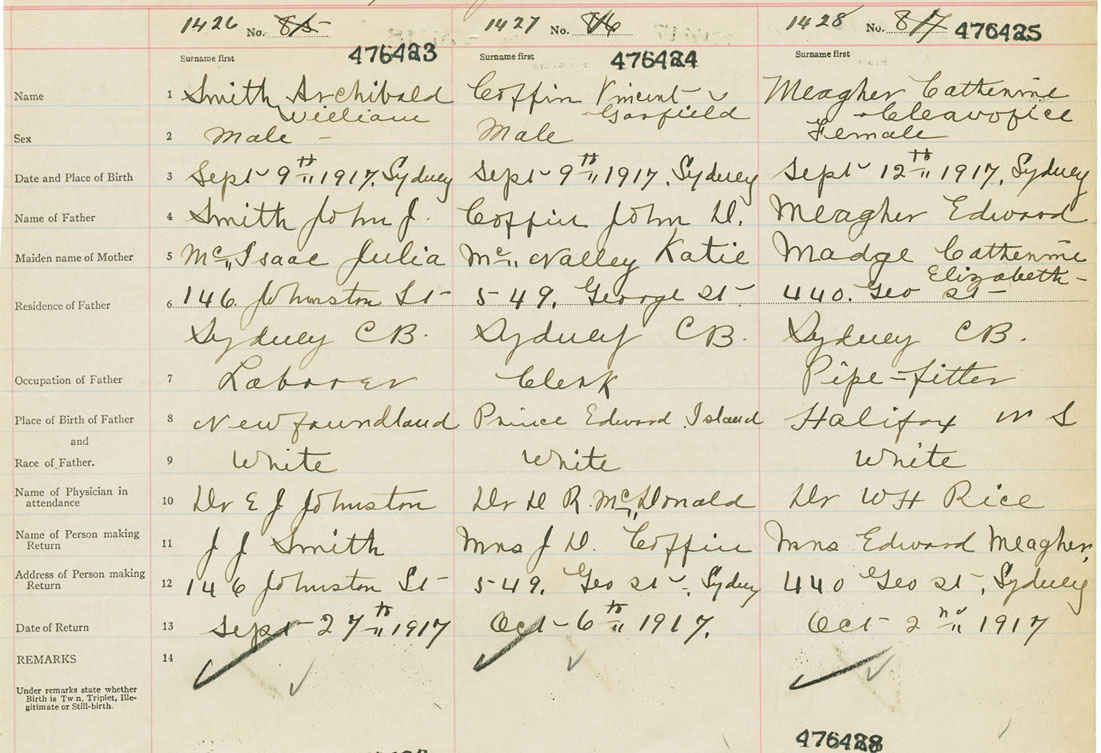 1426 No. 815 1427 No. 816 1428 No. 817
476423 476424 476425
Surname first Surname first Surname first
Name 1 Smith Archibald Coffin Vincent Meagher Catherine
William Garfield Cleavofice
Sex 2 Male Male Female
Date and Place of Birth 3 Sept 9th 1917, Sydney Sept 9th 1917, Sydney Sept 12th 1917, Sydney
Name of Father 4 Smith John J. Coffin John D. Meagher Edward
Maiden name of Mother 5 Mc Isaac Julia Mc Nalley Katie Madge Catherine
Elizabeth
Residence of Father 6 146 Johnston St 549, George st 440. Geo st
Sydney C B. Sydney C B. Sydney C B.
Occupation of Father 7 Laborer Clerk Pipe-fitter
Place of Birth of Father 8 Newfoundland Prince Edward Island Halifax N S
and
Race of Father. 9 White White White
Name of Physician in attendance 10 Dr E J Johnston Dr D R. McDonald Dr W H Rice
Name of Person making Return 11 J J Smith Mrs J D. Coffin Mrs Edward Meagher,
Address of Person making Return 12 146 Johnston St 549, Geo st, Sydney 440 Geo st, Sydney
Date of Return 13 Sept 27th 1917 Oct 6th 1917. Oct 2nd 1917
REMARKS 14
Under remarks state whether
Birth is Twin, Triplet, Ille-
gitimate or Still-birth.
476428